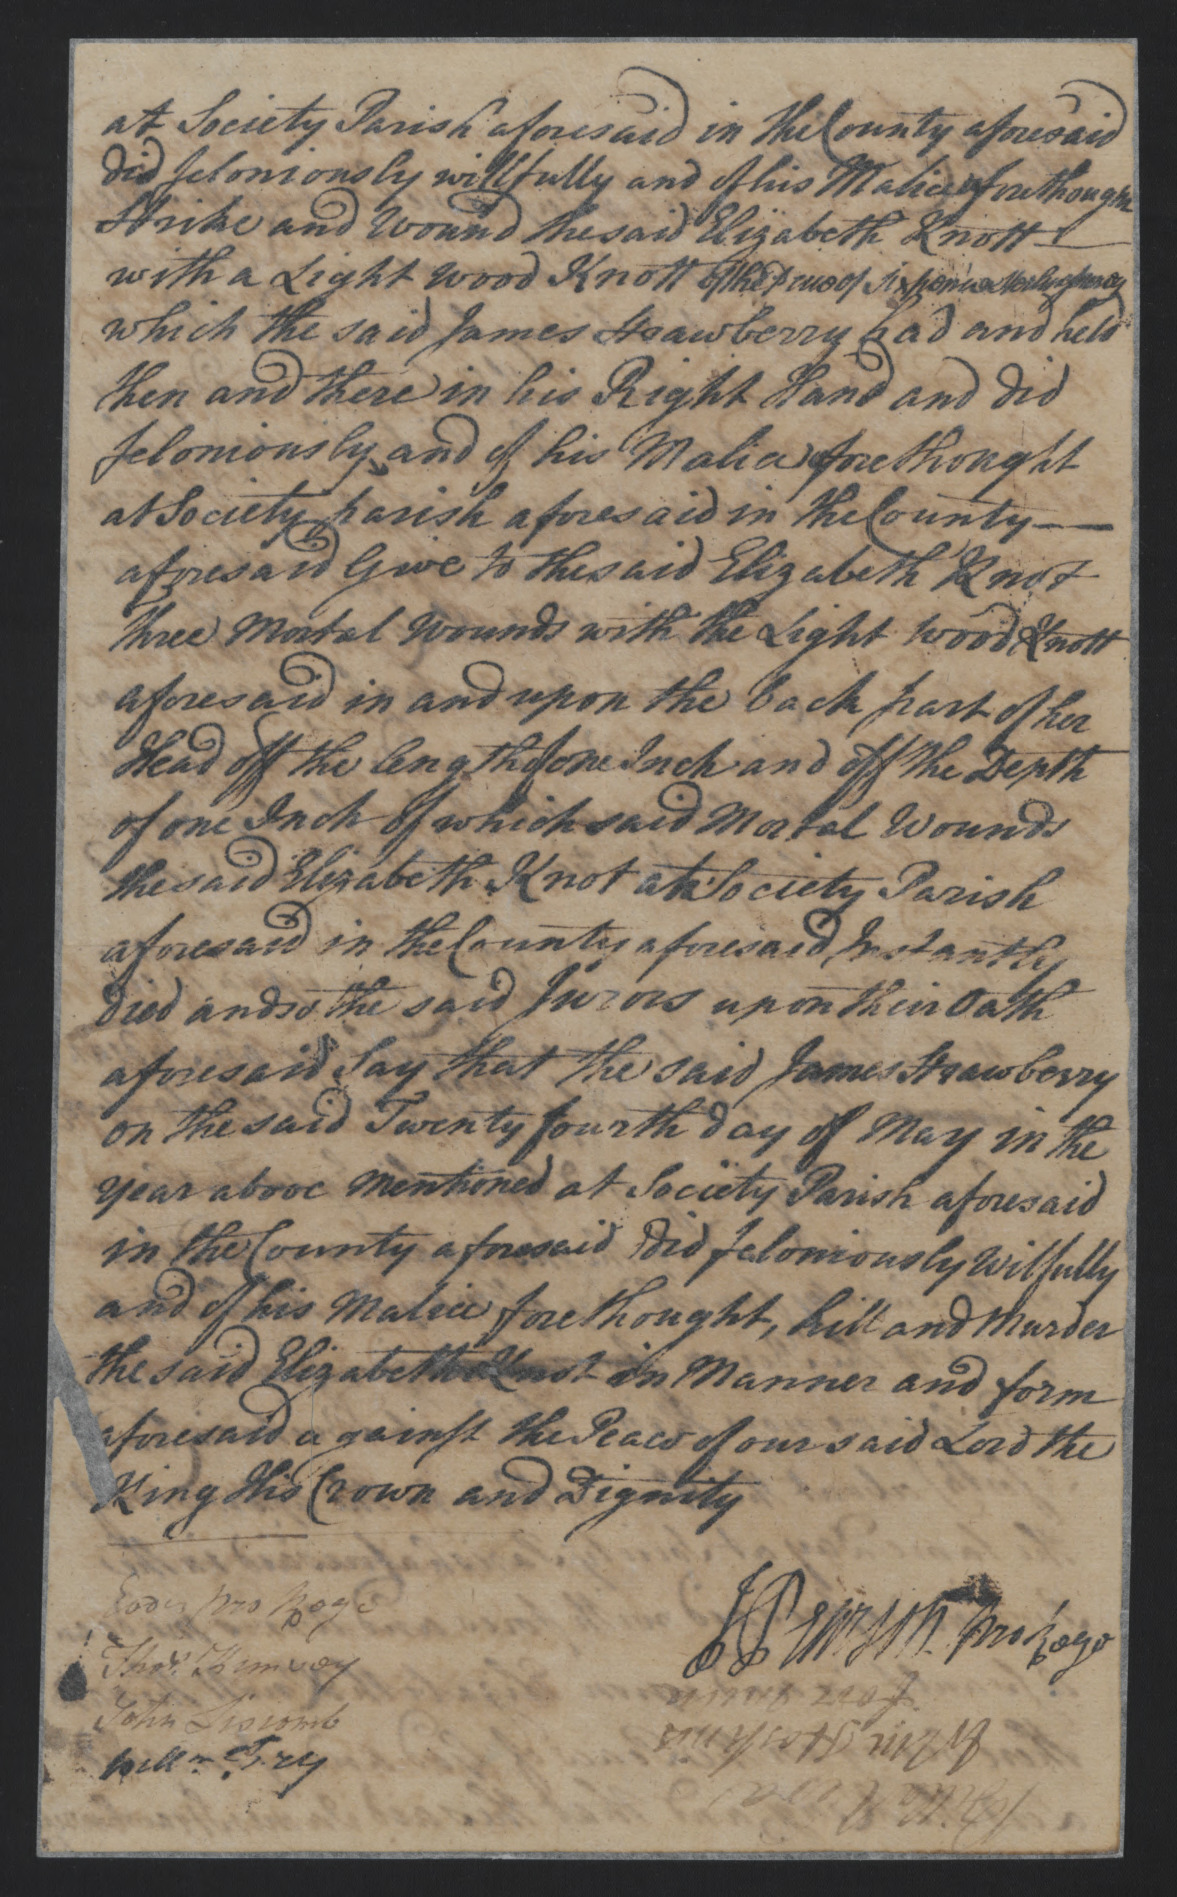 at Society Parish aforesaid in the County aforesaid
did feloniously willfully and of his Malice forethought
Strike and Wound the said Elizabeth Knott
with a Light Wood Knott of the price of six pence
which the said James Strawberry had and held
then and there in his Right Hand and did
feloniously and of his Malice forethought
at Society parish aforesaid in the County
aforesaid Give to the said Elizabeth Knot
three Mortal Wounds with the Light Wood Knott
aforesaid in and upon the back part of her
Head off the length of one Inch and off the Depth
of one Inch of which said Mortal Wounds
the said Elizabeth Knot at Society Parish
aforesaid in the County aforesaid Instantly
died and so the said Jurors upon their Oath
aforesaid Say that the said James Strawberry
on the said Twenty fourth day of May in the
year above Mentioned at Society Parish aforesaid
in the County aforesaid did feloniously Wilfully
and of his Malice forethought, kill and Murder
the said Elizabeth Knot in Manner and form
aforesaid against the Peace of our said Lord the
King His Crown and Dignity
pro Rege
John Liscomb
Pearson pro Rege
Willm Gray